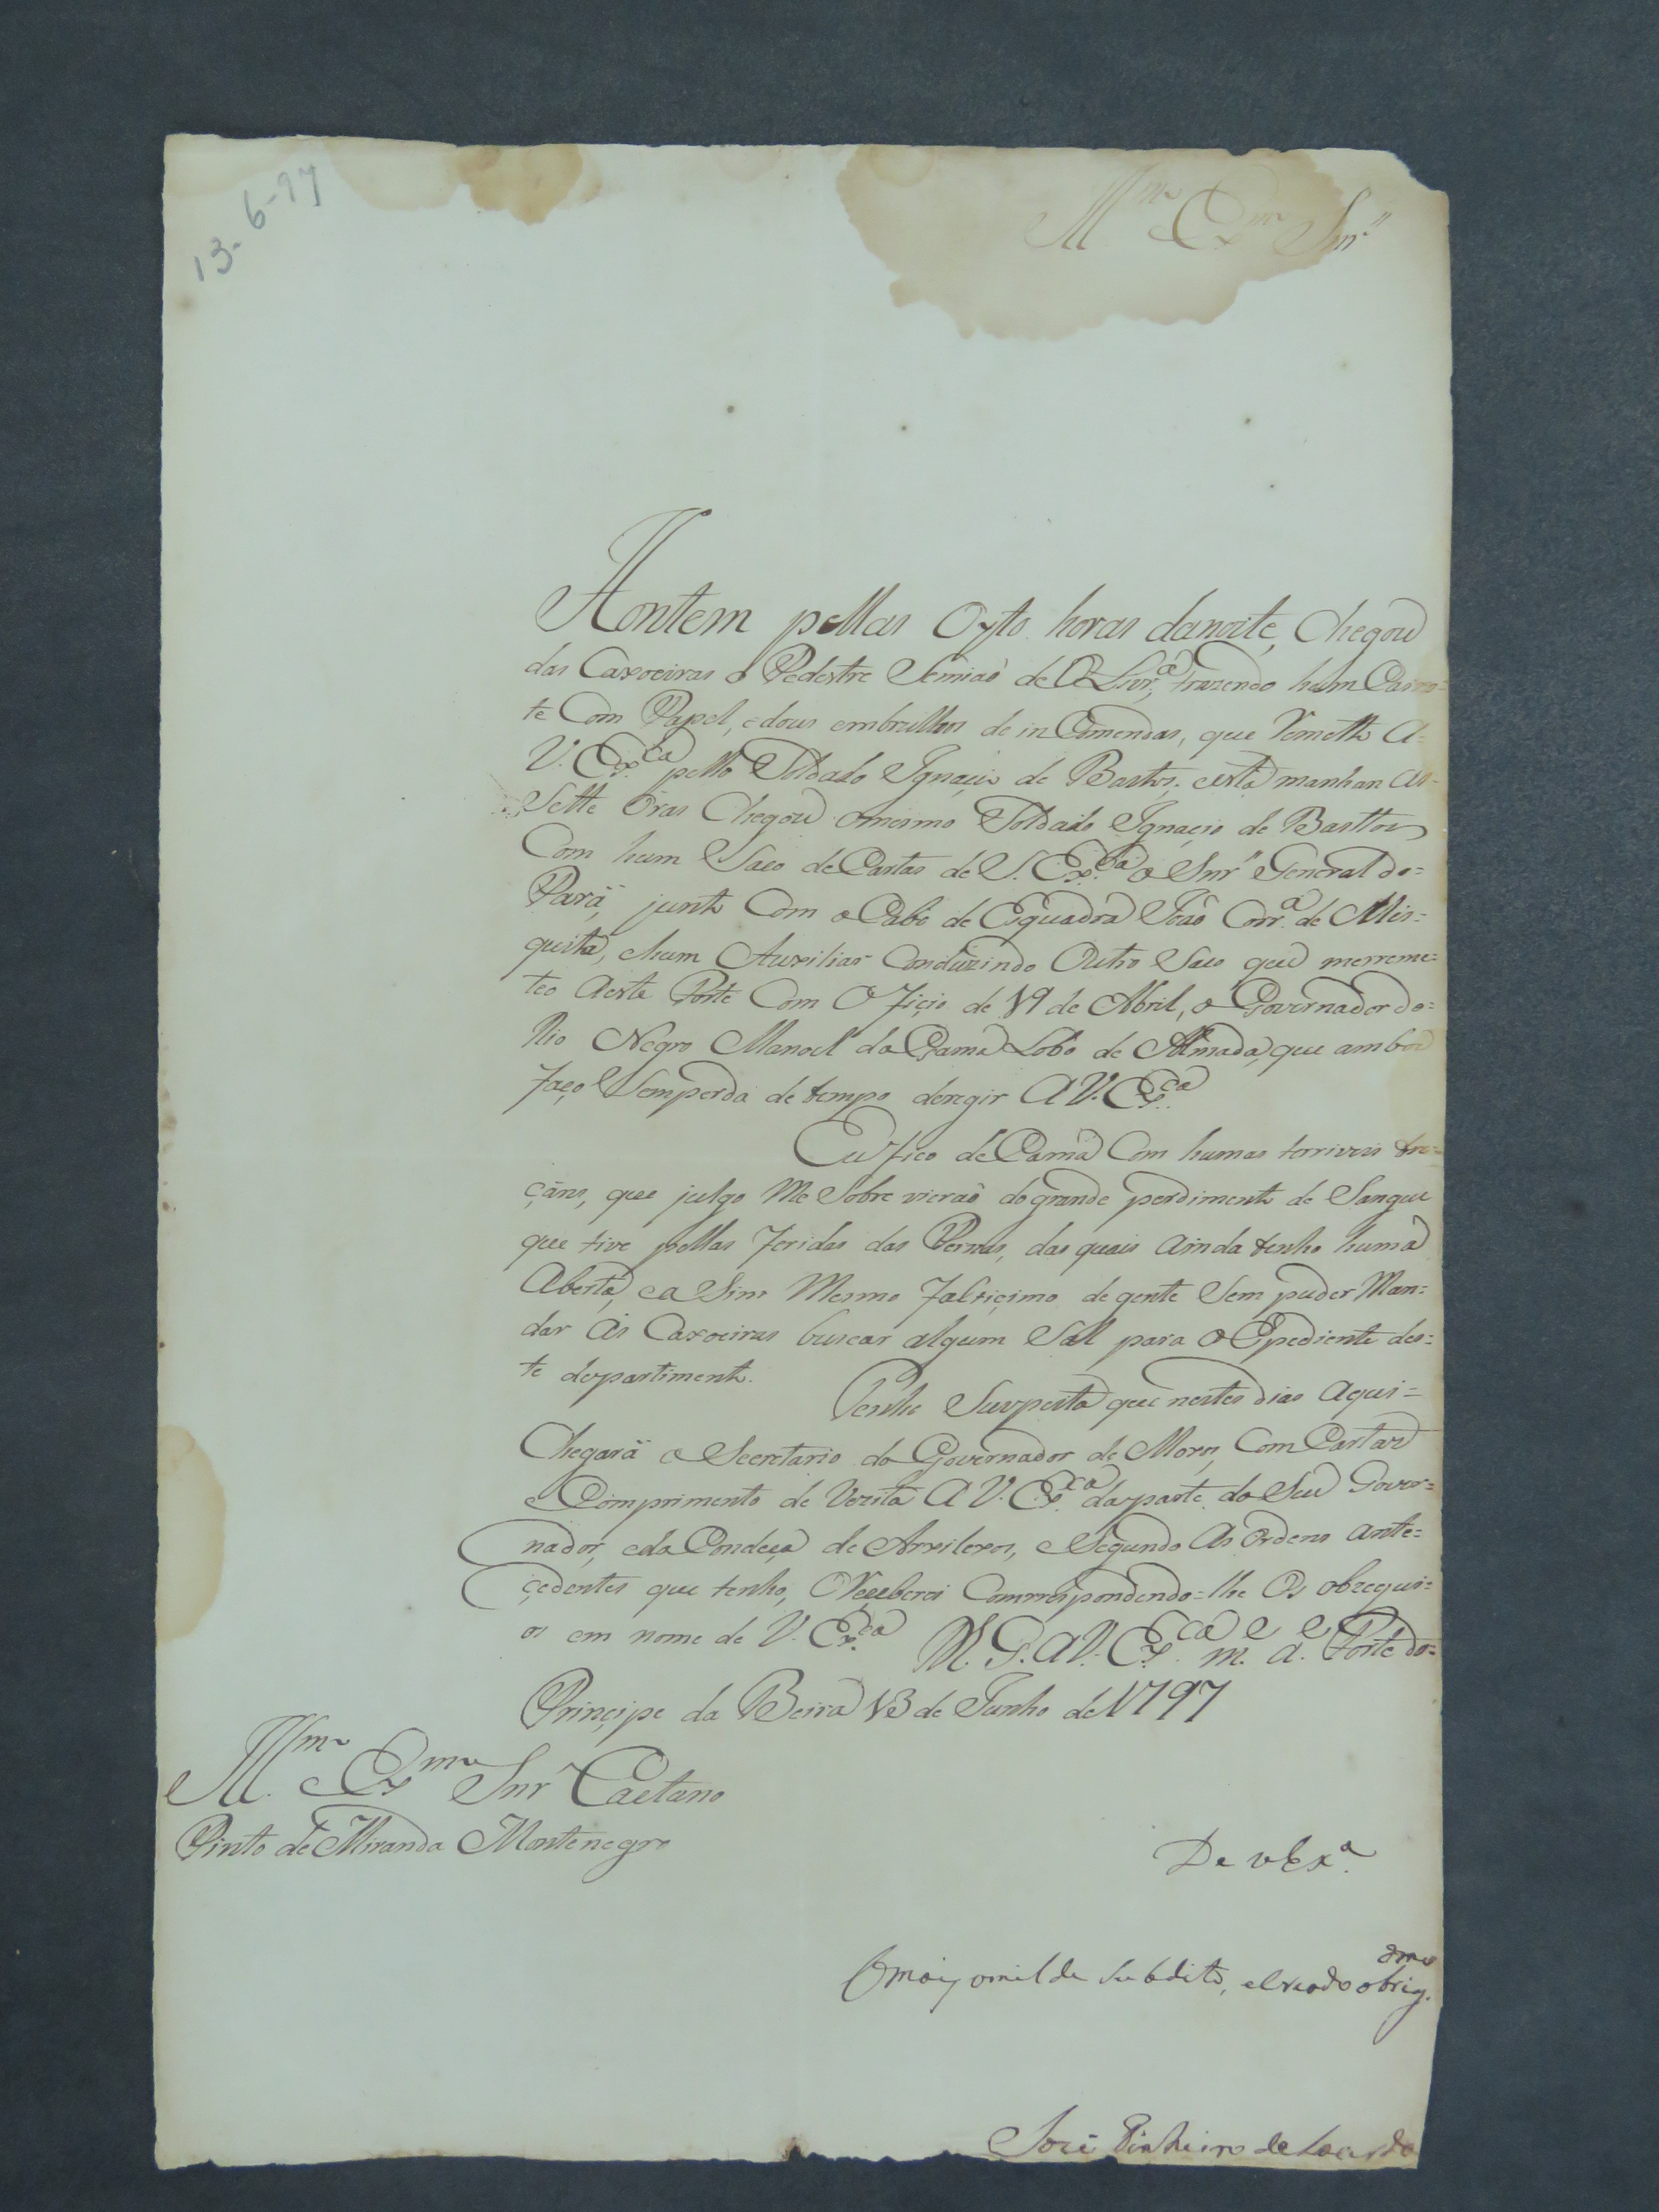 13-6-97
Ill.mo Ex.mo Snr.
Hontem pellas Oyto horas danoite, Chegou
das Caxoeiras o Pedestre Simiaõ de OLivr.ª, trazendo hum Caixo=
te Com Papel, e dous embrulhos de in Comendas, que Remetto A=
V. Ex.ca pello Soldado Ignaçio de Bastos; esta manhan As=
Sette Oras Chegou omesmo Soldado Ignaçio de Basttos
Com hum Saco de Cartas de S. Ex.ca o Snr General do=
Pará, junto Com o Cabo de Esquadra Joaõ Corr.ª de Mis=
quita, ehum Auxiliar Conduzindo Outro Saco que merreme=
teo Aeste Forte Com Ofiçio de 19 de Abril, o Governador do=
Rio Negro Manoel da Gama Lobo de Almada, que ambos
faço Semperda de tempo deregir A V. Ex.ca
Eu fico de Cama Com humas terriveis
çãns, que julgo Me Sobre vieraõ do grande perdimento de Sangue
que tive pellas feridas das Pernas, das quais Ainda tenho huma
Aberta, e a Sim Mesmo faltiçimo de gente Sem puder Man=
dar Ás Caxoeiras buscar algum Sall para o Espediente des=
te departimento.
Tenho Suspeita que nestes dias Aqui=
Chegará o Secretario do Governador de Moxos, Com Cartas
e Comprimento de Vezita A V. Ex.ca da parte do Seu Gover=
nador, e da Condeça de Arxilexos, e Segundo As Ordens Ante=
çedentes que tenho, O Reçeberei Comrrespondendo=lhe Os obzequi=
os em nome de V. Ex.ca N. G. A V. Ex.ca m.e a.e Forte do=
Prinçipe da Beira 13 de Junho de 1797
Ill.mo Ex.mo Snr Caetano
Pinto de Miranda Montenegro
De v Ex.ª
O mais omilde Subdito, e Criado obrig.dmo
Jozé Pinheiro de Lacerda